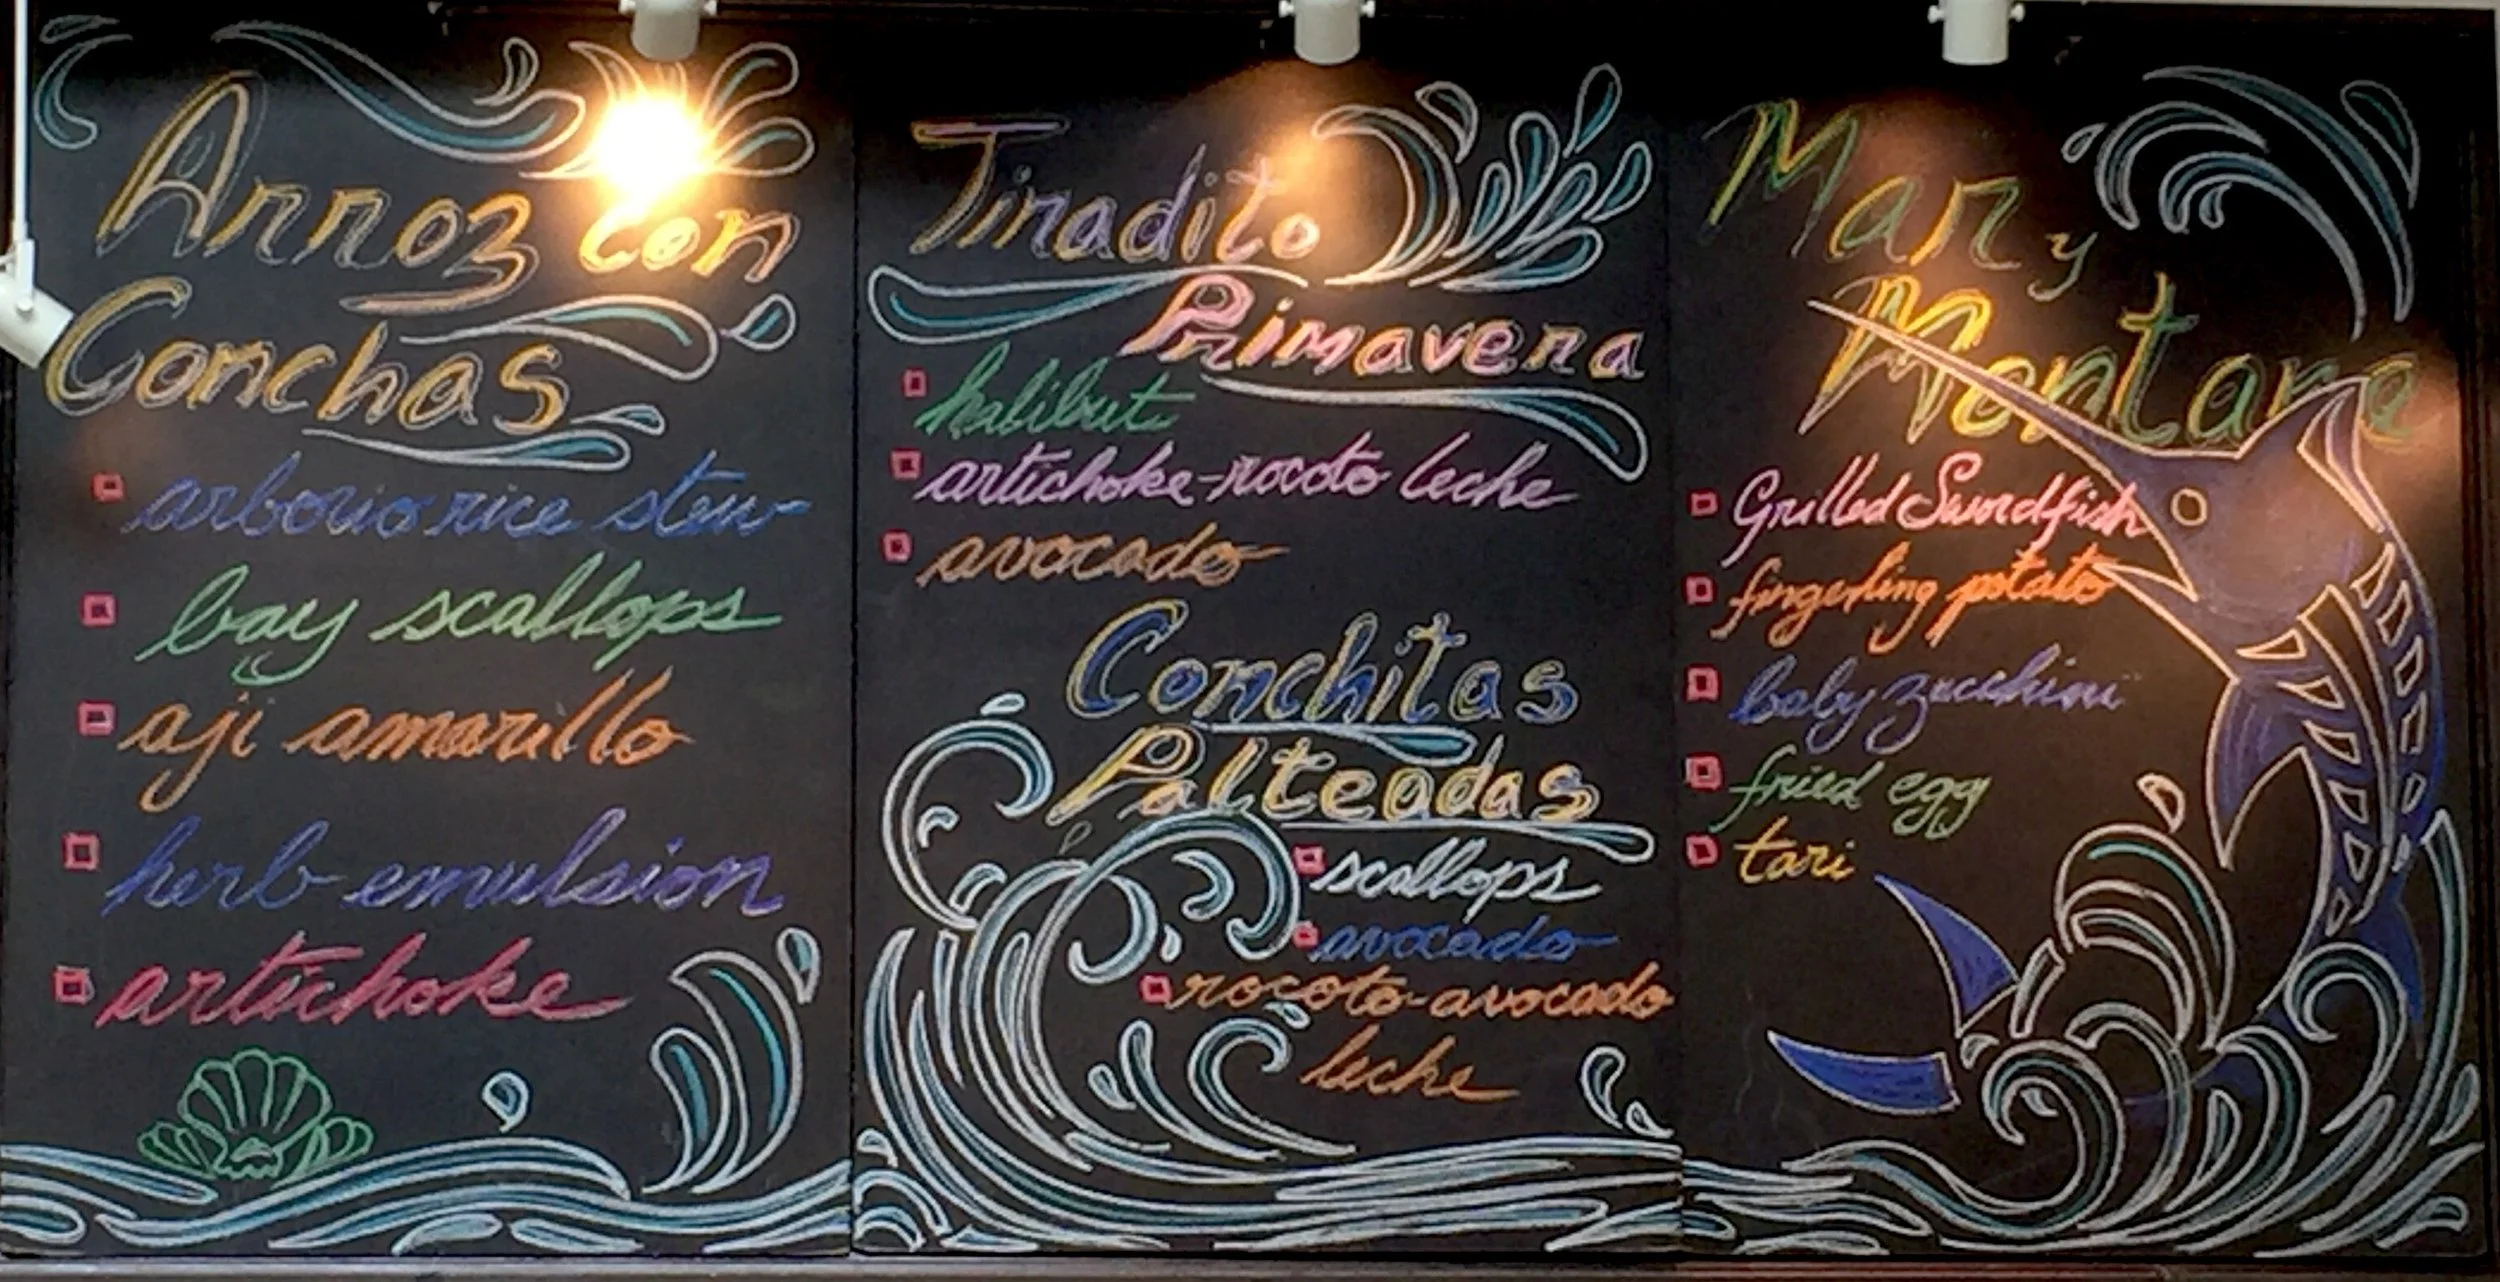 Arroz con
Conchas
arborio rice stew
bay scallops
aji amarillo
herb emulsion
artichoke
Tiradito
Primavera
halibut
artichoke-rocoto leche
avocado
Conchitas
Palteadas
scallops
avocado
rocoto-avocado
leche
Mar y
Montana
Grilled Swordfish
fingerling potato
baby zucchini
fried egg
tari